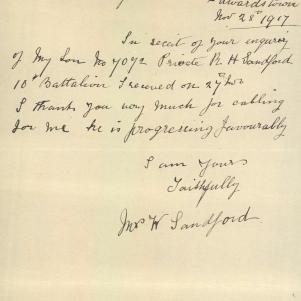 Edwardstown
Nov 28th 1917
In recit of your inquiry
of My Son No 7072 Private R H Sandford
10th Battalion I received on 27th Nov
I thank you very much for calling
for me he is progressing favourally
I am Yours
Faithfully
Mrs W Sandford